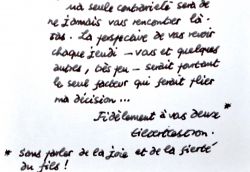 ma seule contrariété sera de
ne jamais vous rencontrer là-
bas. La perspective de vous revoir
chaque jeudi - vous et quelques
autres, dès jeu - serait portant
le seul facteur qui ferait plier
ma décision...
Fidèlement à vous deux *
* Sans parler de la joie et de la fierté
du fils !